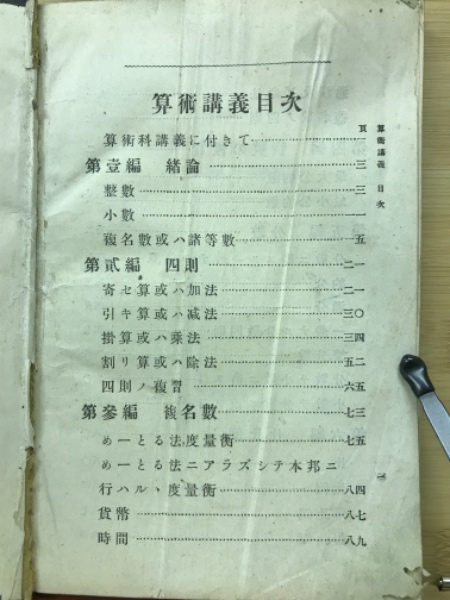 算術講義目次
頁
算術科講義に付きて…一
第壹編 緒論…三
整數…三
小數…一一
複名數或ハ諸等數…一五
第貳編 四則…二一
寄セ算或ハ加法…二一
引キ算或ハ減法…三〇
掛算或ハ乘法…三四
割リ算或ハ除法…五二
四則ノ複習…六五
第參編 複名數…七三
めーとる法度量衡…七五
めーとる法ニアラズシテ本邦ニ
行ハルヽ度量衡…八四
貨幣…八七
時間…八九
算術講義 目次
一